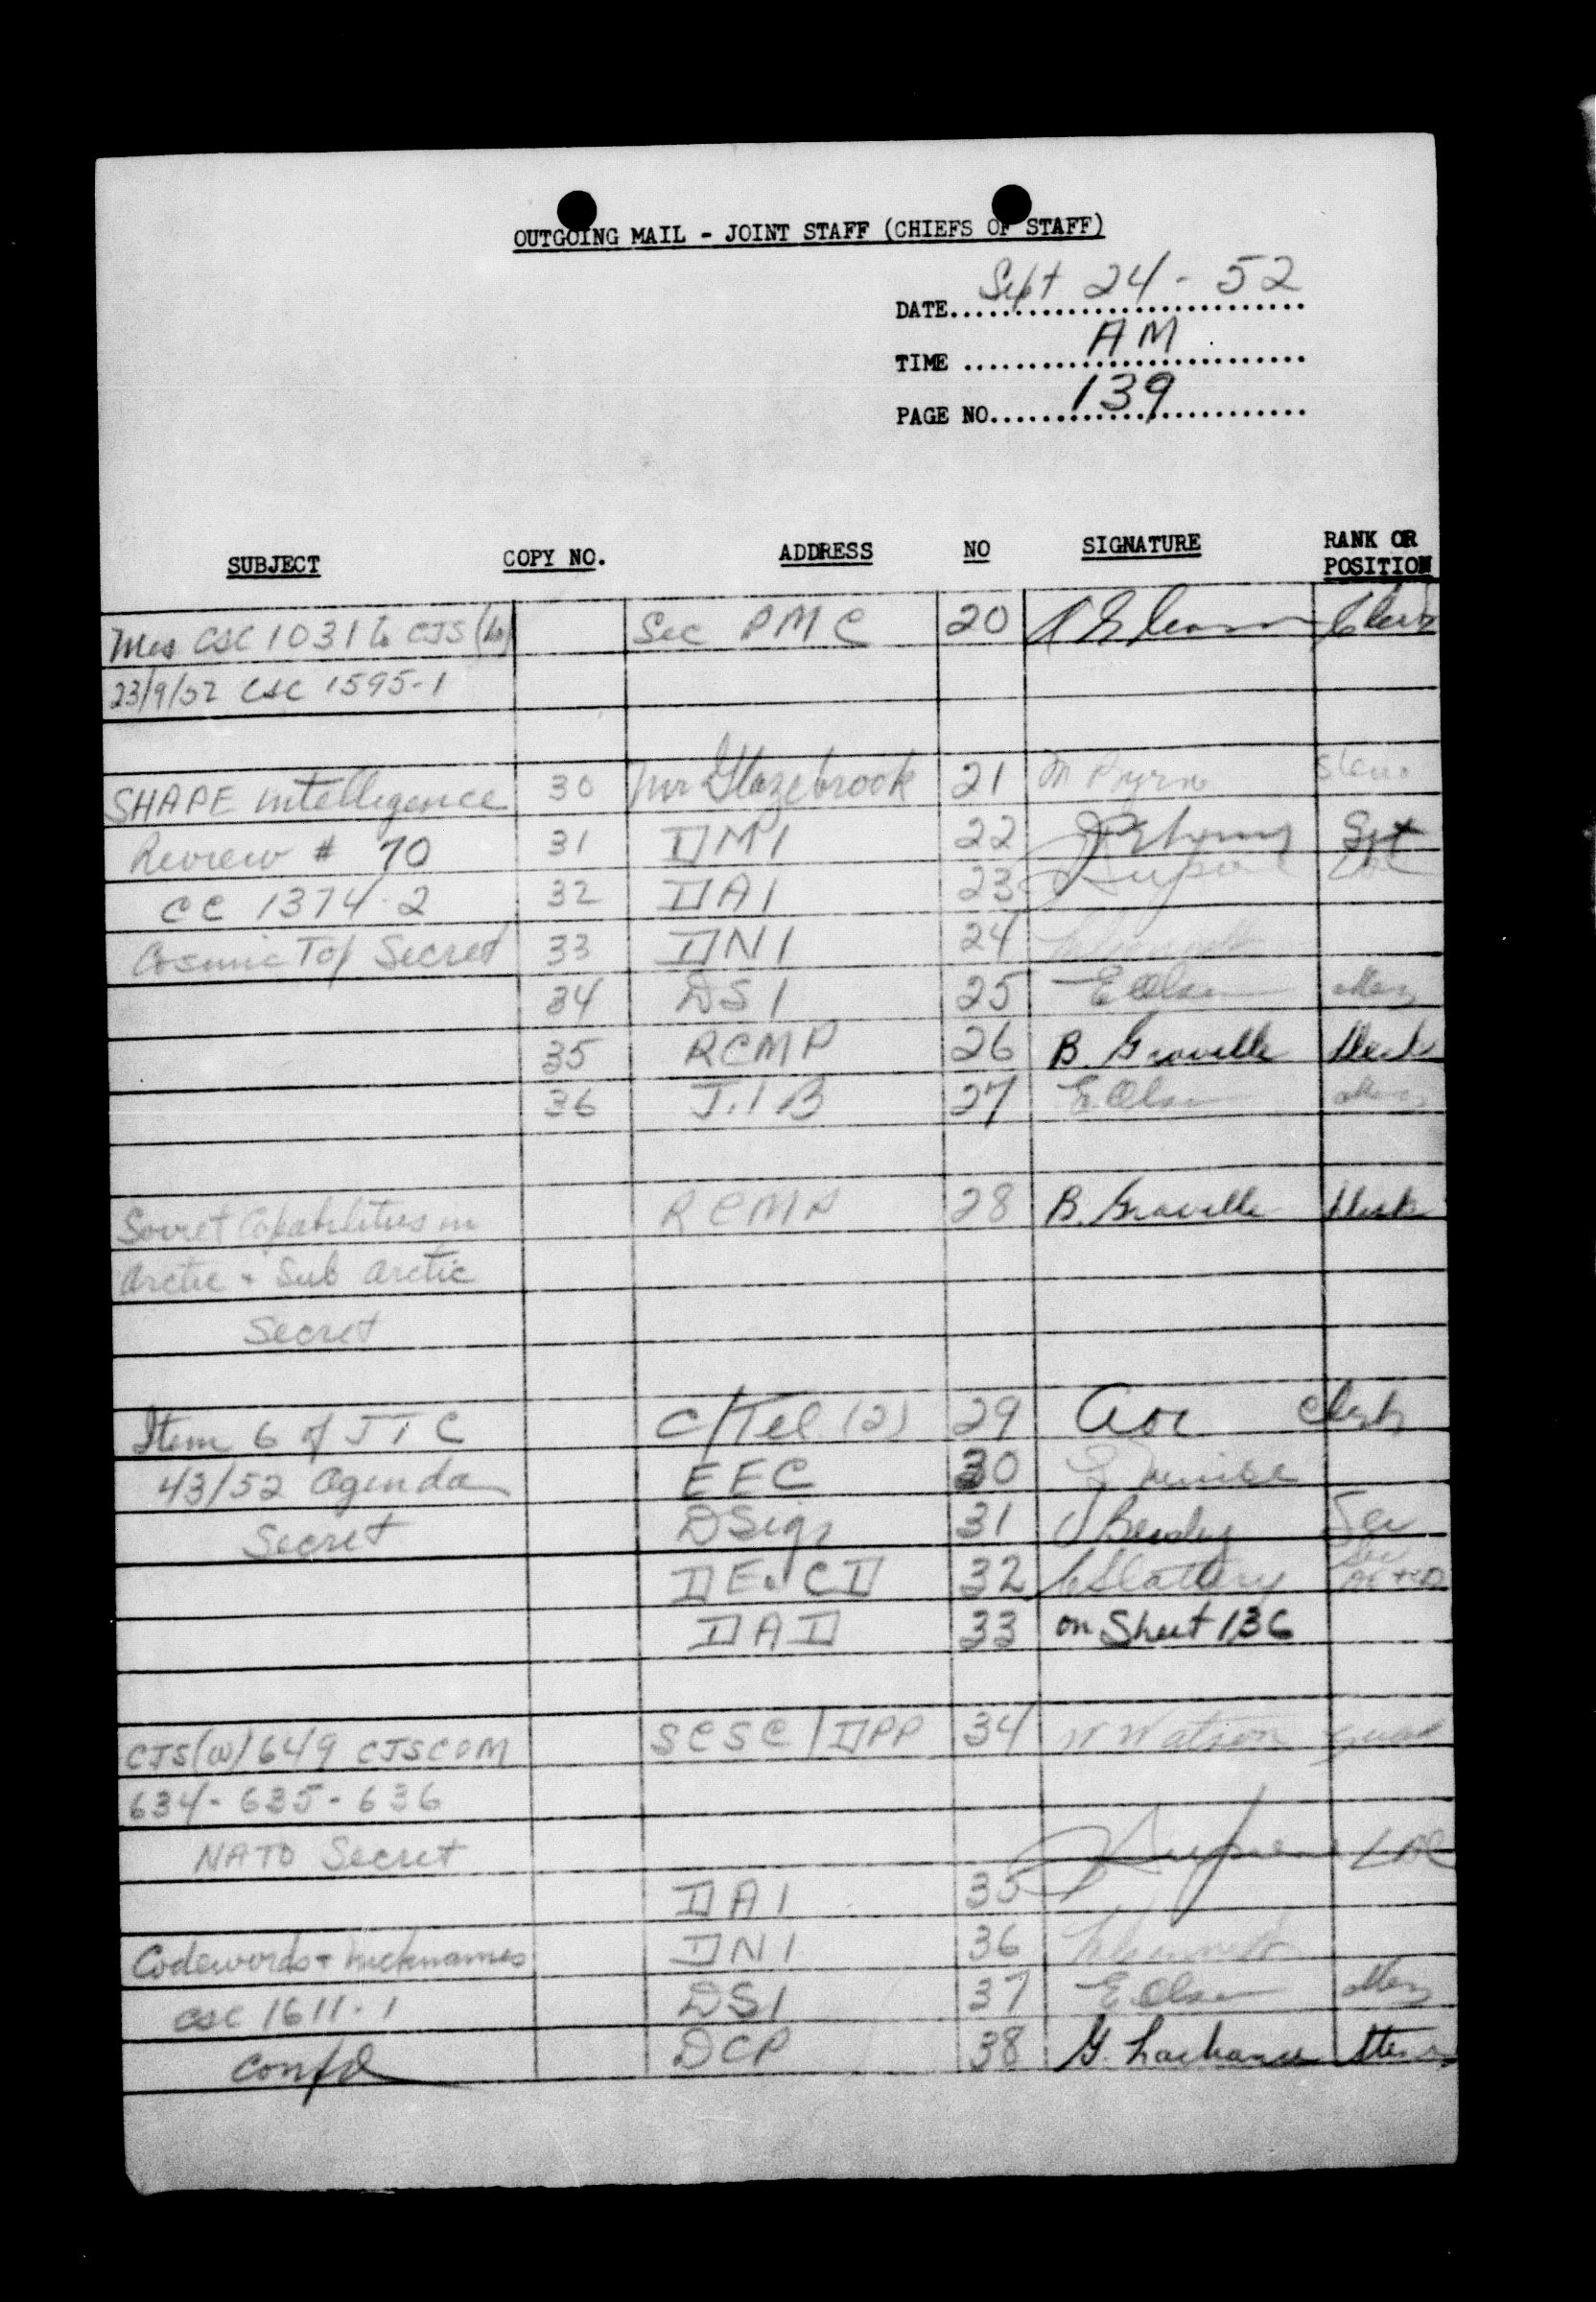 OUTGOING MAIL - JOINT STAFF (CHIEFS OF STAFF)
DATE Sept 24 - 52
TIME AM
PAGE NO. 139
SUBJECT COPY NO. ADDRESS NO SIGNATURE RANK OR POSITION
Mes CSC 1031 to CJS Sec PMC 20 Clerk
23/9/52 CSC 1595-1
SHAPE Intelligence 30 Mr Glazebrook 21 Steno
Review # 70 31 DMI 22 Sgt
CC 1374-2 32 DAI 23 LAC
Cosmic Top Secret 33 DNI 24
34 DSI 25 E Olsen
35 RCMP 26 B. Graville
36 J.I B 27 E. Olsen
Soviet Capabilities in RCMP 28 B. Graville
Arctic + Sub Arctic
Secret
Item 6 of J T C C/Tel (2) 29 Clerk
43/52 Agenda EEC 30
Secret DSigs 31 Sec
DE.CD 32 Slattery
DAD 33 on Sheet 136
CJS(W) 649 CJSCOM SCSC/DPP 34 W Watson
634-635-636
NATO Secret
DAI 35 LAC
Codewords + nicknames DNI 36
CSC 1611-1 DSI 37 E Olsen
Confd DCP 38 G. Lachance Steno